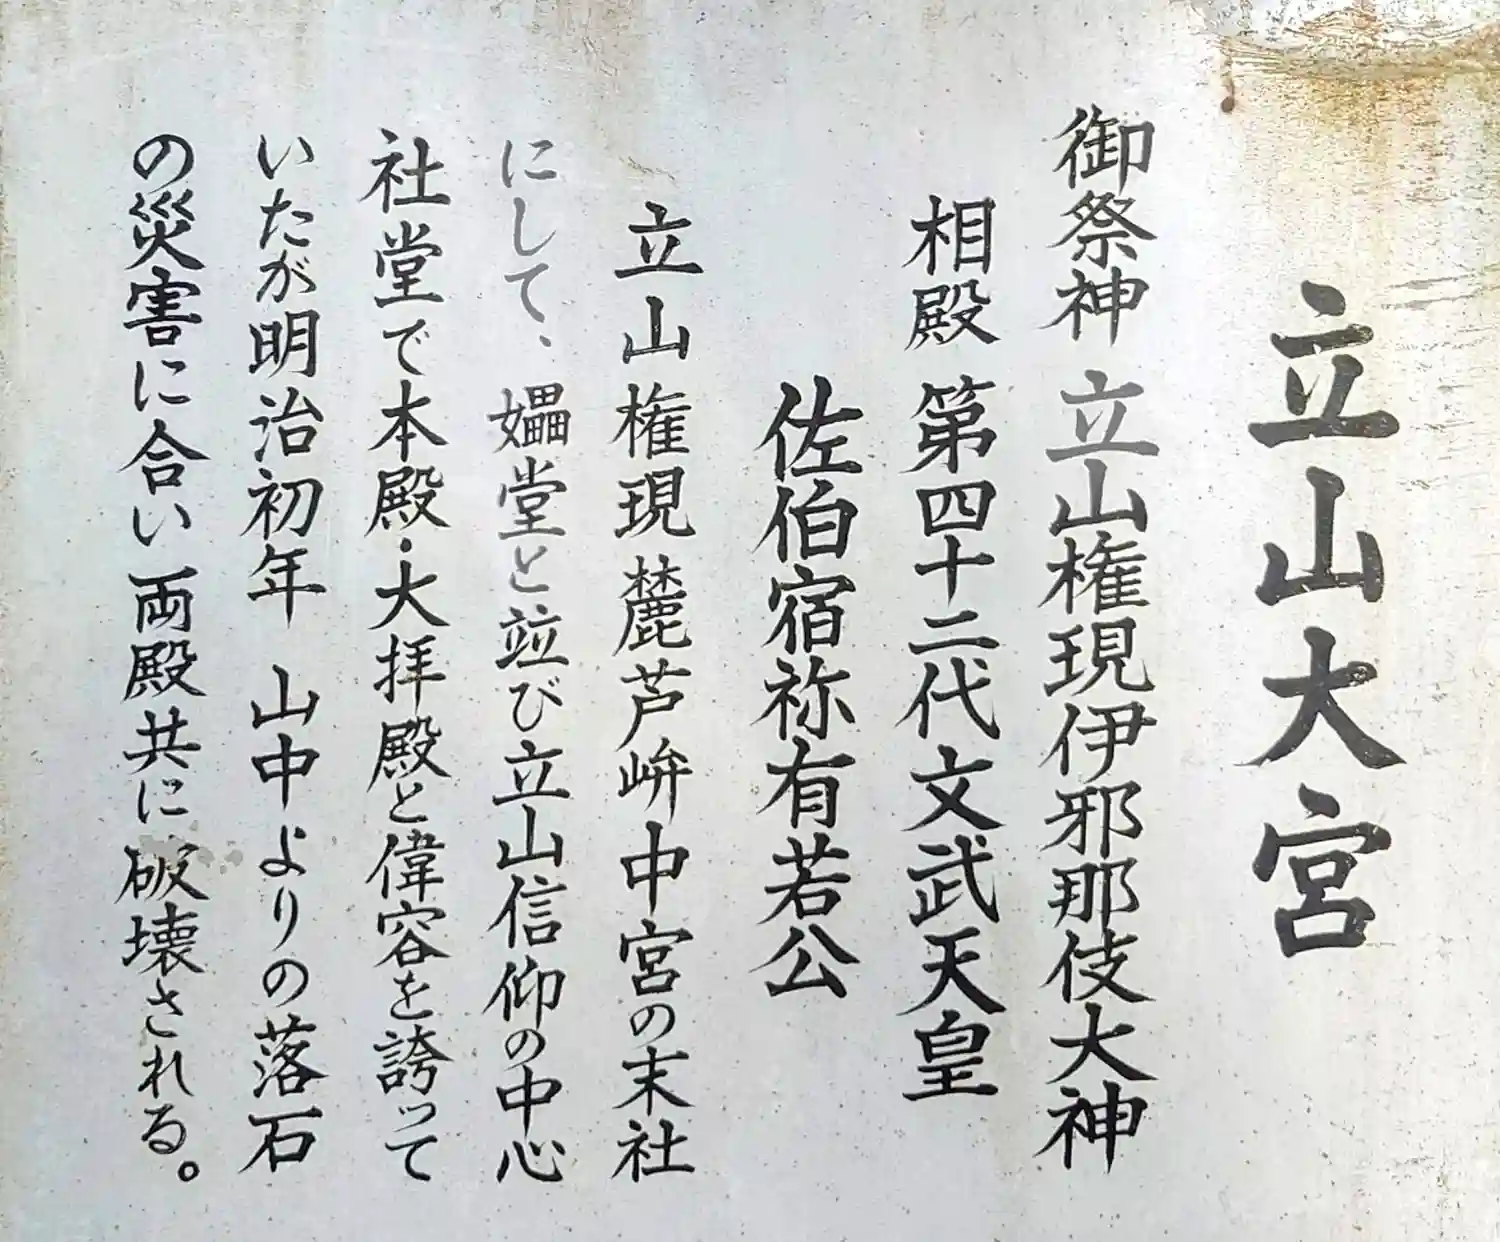 立山大宮
御祭神 立山権現伊邪那伎大神
相殿 第四十二代文武天皇
佐伯宿祢有若公
立山権現麓芦峅中宮の末社
にして、 𡚴堂と竝び立山信仰の中心
社堂で本殿・大拝殿と偉容を誇って
いたが明治初年 山中よりの落石
の災害に合い両殿共に破壊される。